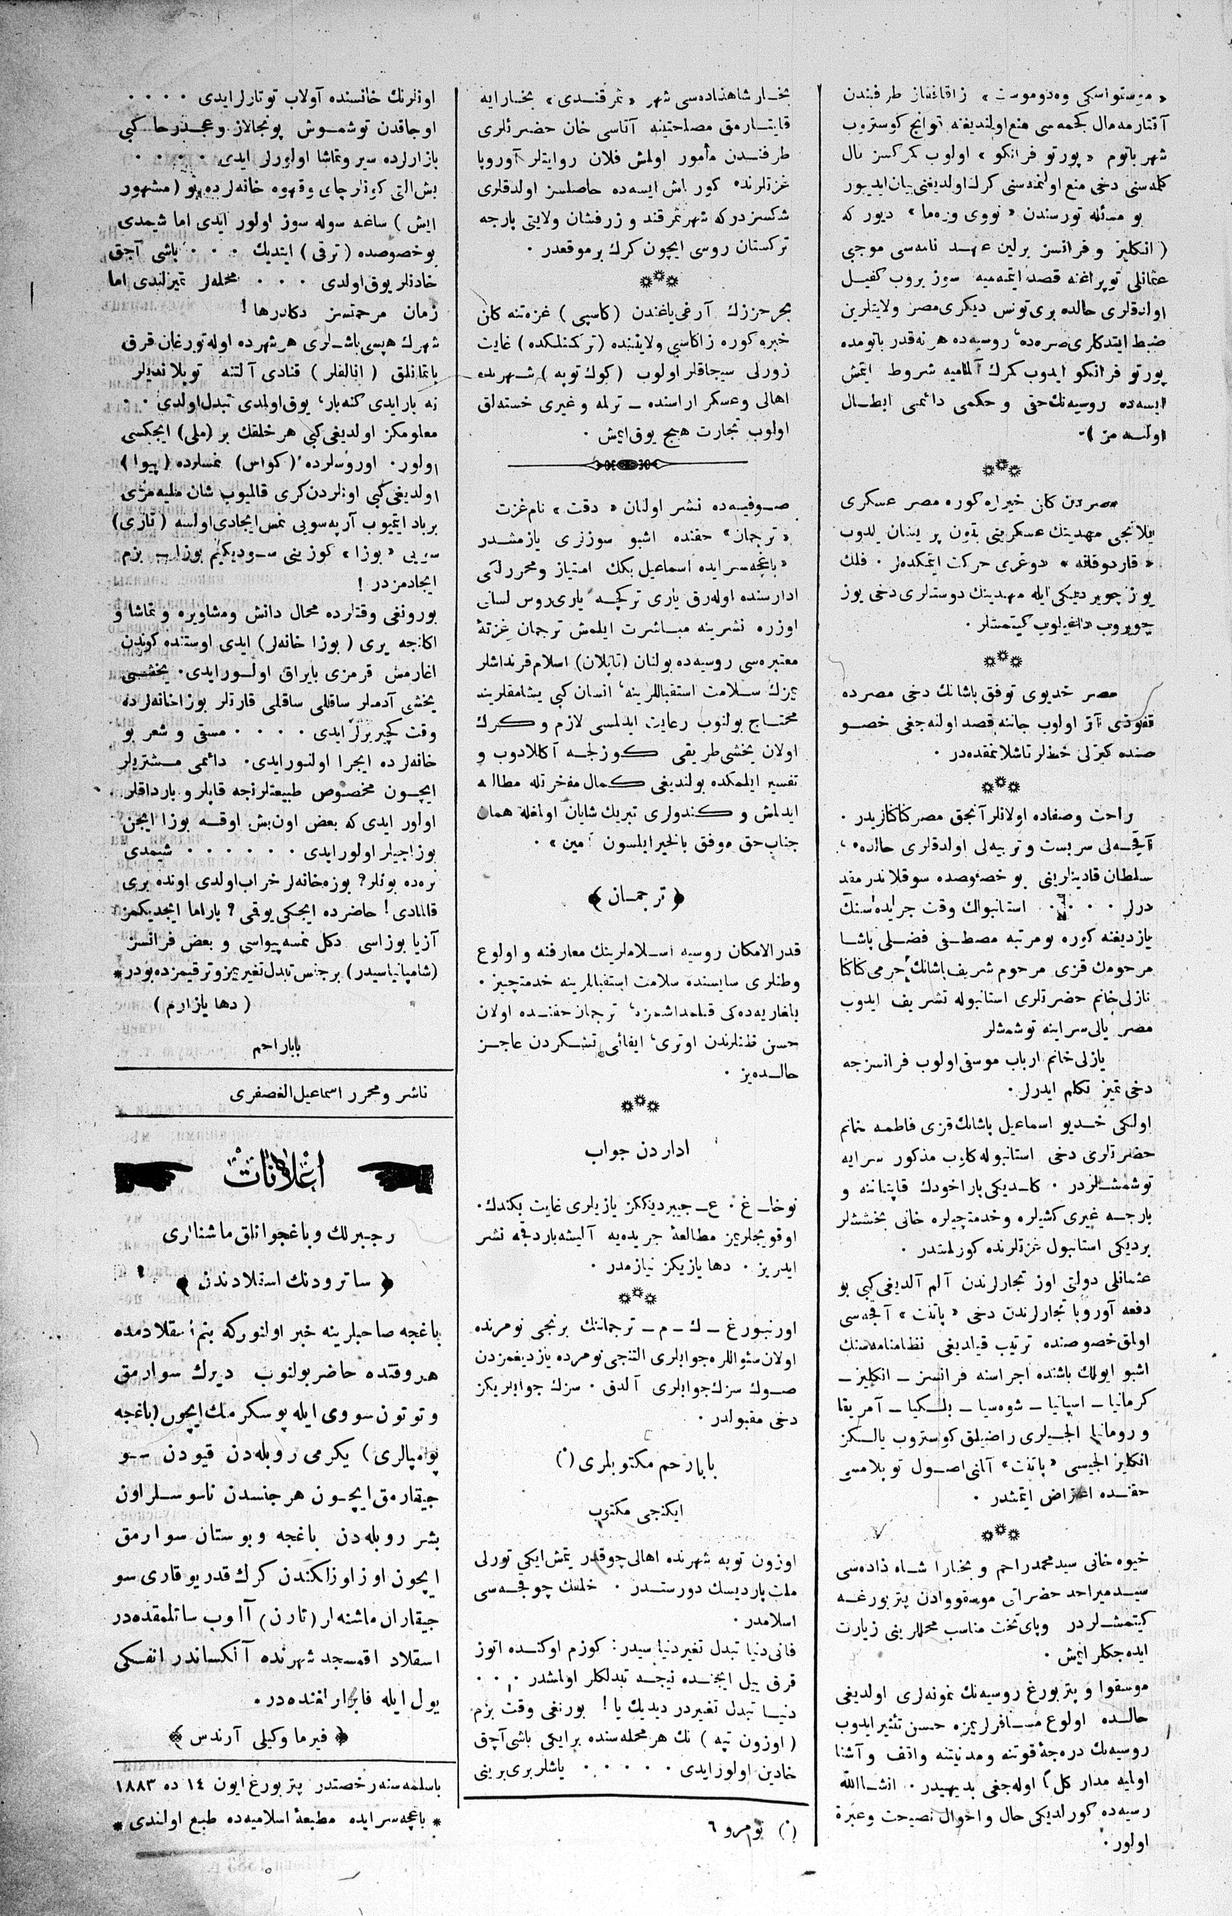 « موستواسكى وه‌دوموست » زاقافقاز طرفندن
آقتارمه مال كچمه‌سى منع اولنديغنه توانج كوستروب
شهر باتوم « پورتو فرانكو » اولوب كمركسز مال
كلمه‌سنى دخى منع اولنمه‌سنى كرك اولديغنى بيان ايديور
بو مسئله تورسندن « نووى وره‌ما » ديور كه
( انكليز و فرانسز برلين عهد نامه‌سى موجبى
عثمانلى توپراغنه قصد ايتمه‌ميه سوز يروب كفيل
اولدقلرى حالده برى تونس ديكرى مصر ولايتلرين
ضبط ايتدكلرى صره‌ده، روسيه‌ده هر نه‌قدر باتومده
پورتو فرانكو ايدوب كمرك آلماميه شروط ايتمش
ايسه‌ده روسيه‌نك حقى و حكمى دائمى ابطال
اولنه‌مز ).
مصردن كلن خبرله كوره مصر عسكرى
يلانجى مهدينك عسكرينى بتون پريشان ايدوب
« قاردوفانه » دوغرى حركت ايتمكده‌لر . فلك
يوز چويرديكى ايله مهدينك دوستلرى دخى يوز
چويروب داغيلوب كيتمشلر .
مصر خديوى توفق پاشانك دخى مصرده
نفوذى آز اولوب جاننه قصد اولنه‌جغى خصو
صنده كيزلى خطلر تاشلانمقده‌در .
راحت وصفاده اولانلر آنجق مصر كتاكازيدر .
آقچه‌لى سربست و تربيه‌لى اولدقلرى حالده،
سلطان قادينلرينى بو خصوصده سوقلاندرمقد
درلر . . . . استانبولك وقت جريده‌سنك
يازديغنه كوره بو مرتبه مصطفى فضلى پاشا
مرحومك قزى مرحوم شريف پاشانك حرمى
نازلى خانم حضرتلرى استانبوله تشريف ايدوب
مصر يالى سراينه توشمشلر
يازلى خانم ارباب موسقى اولوب فرانسزجه
دخى تميز تكلم ايدرلر .
اولكى خديو اسماعيل پاشانك قزى فاطمه خانم
حضرتلرى دخى استانبوله كلوب مذكور سرايه
توشمشلردر . كلديكى پاراخودك قاپتاننه و
بارجه غيرى كشيلره و خدمتچيلره خانى بخششلر
برديكى استانبول غزتلرنده كورلمشدر .
عثمانلى دولتى اوز تجارلرندن آلم آلديغى كبى بو
دفعه آوروپا تجارلرندن دخى « پاتنت » آقچه‌سى
اولمق خصوصنده ترتيب قيلديغى نظامنامه‌سنك
اشبو ايولك باشنده اجراسنه فرانسز ـ انكليز ـ
كرمانيا ـ اسپانيا ـ شوه‌سيا ـ بلكيا ـ آمريقا
و رومانيا الچيلرى راضيلق كوستروب يالكز
انكليز الچيسى « پاتنت » آلنى اصول توپلامسى
حقنده اعتراض ايتمشدر .
خيوه خانى سيد محمد راحم و بخارا شاه ذاده‌سى
سيد ميراحد حضراتى موسقوودن پتربورغه
كيتمشلردر و پاى تخت مناسب محللرينى زيارت
ايده‌جكلر ايمش .
موسقوا و پتربورغ روسيه‌نك نمونه‌لرى اولديغى
حالده اولوغ مسافرلريمزه حسن تئثير ايدوب
روسيه‌نك درجهٔ قوتنه و مدنيتنه واقف و آشنا
اولميه مدار كلى اوله‌جغى بديهيدر . انشاالله
رسيه‌ده كورلديكى حال و اخوال نصيحت و عبرة
اولور .
بخارا شاهذاده‌سى شهر « ثمرقندى » بخارايه
قايتارمق مصلاحتينه آتاسى خان حضرتلرى
طرفندن مأمور اولمش فلان روايتلر آوروپا
غزتلرنده كورلمش ايسه‌ده حاصلسز اولدقلرى
شكسزدر كه شهر ثمرقند و زرفشان ولايتى پارجه
تركستان روسى ايچون كرك بر موقعدر .
بحر حزرك آرغى ياغندن ( كاسپى ) غزه‌تنه كلن
خبره كوره زاكاسپى ولايتنده ( تركمنلكده ) غايت
زورلى سيجاقلر اولوب ( كوك توپه ) شهرنده
اهالى و عسكر اراسنده ـ ترله و غيرى خسته‌لق
اولوب تجارت هيچ يوق ايمش .
صوفيه‌ده نشر اولنان « دقت » نام غزت
« ترجمان » حقنده اشبو سوزلرى يازمشدر
« باغچه‌سرايده اسماعيل بكك امتياز و محررلكى
ادارسنده اوله‌رق يارى تركچه يارى روس لسانى
اوزره نشرينه مباشرت ايلمش ترجمان غزتهٔ
معتبره‌سى روسيه‌ده بولنان ( تاپلان ) اسلام قرنداشلر
يمزك سلامت استقباللرينه، انسان كبى يشامقلرينه
محتاج بولنوب رعايت ايدلمسى لازم و كرك
اولان يخشى طريقى كوزلجه آكلادوب و
تفسير ايلمكده بولنديغى كمال مفخرتله مطالعه
ايدلمش و كندولرى تبريك شايان اولمغله همان
جناب حق موفق بالخير ايلسون آمين » .
﴿ ترجمان ﴾
قدر الامكان روسيه اسلاملرينك معارفنه و اولوع
وطنلرى سايسنده سلامت استقباللرينه خدمتچيز .
بلغاريه‌ده‌كى قلمداشمزه، ترجمان حقنده اولان
حسن ظنلرندن اوترى، ايفائى تشكردن عاجز
حالده‌يز .
اداردن جواب
نوخا ـ غ . ع ـ جيبرديككز يازيلرى غايت يكندك.
اوقويجلريمز مطالعهٔ جريده‌يه آليشه‌باردقجه نشر
ايدريز . دها يازيكز نيازمدر .
اورنبورغ ـ ك ـ م ـ ترجمانك برنجى نومرنده
اولان سئواللره جوابلرى التنجى نومرده يازديغمزدن
صوك سزك جوابلرى آلدق . سزك جوابلريكز
دخى مقبولدر .
بابا رحم مكتوبلرى (*)
ايكنجى مكتوب
اوزون توپه شهرنده اهالى چوقدر يتمش ايكى تورلى
ملت بار ديسك دورستدر . خلقك چوقچه‌سى
اسلامدر .
فانى دنيا تبدل تغير دنياسيدر : كوزم اوكنده اتوز
قرق ييل ايچنده نيجه تبدلكلر اولمشدر . . .
دنيا تبدل تغيردر ديديك يا ! بورنغى وقت بزم
( اوزون تپه ) نك هر محله‌سنده بر ايكى باشى آچق
خادين اولور ايدى . . . . . ياشلر برى برينى
(*) نومرو ٦
اونلرنك خانسنده آولاب توتارلر ايدى . . . .
اوجاقدن توشموش پونجالاز و عجذرحا كبى
بازارلرده سير و تماشا اولورلر ايدى . . . .
بش التى كونلر چاى و قهوه خانه‌لرده بو ( مشهور
ايش ) ساغه سوله سوز اولور ايدى اما شيمدى
بو خصوصده ( ترقى ) ايتديك . . . باشى آچق
خادنلر يوق اولدى . . . محله‌لر تميزلندى اما
زمان مرحمتسز دكلدرها !
شهرك هپسى باشلرى هر شهرده اوله تورغان قرق
باتمانلق ( انالفلر ) قنادى آلتنه توپلانديلر
نه بار ايدى كنه بار، يوق اولمدى تبدل اولدى . .
معلومكز اولديغى كبى هر خلقك بر ( ملى ) ايچكسى
اولور . اوروسلرده ( كواس ) نمسلرده ( پيوا )
اولديغى كبى اونلردن كرى قالميوب شان مليه‌مزى
برباد ايتميوب آرپه‌سويى نمس ايجادى اولسه ( تازى )
سريى « بوزا » كوزينى سوديكيم بوزا ـ بزم
ايجادمزدر !
بورونغى وقتلرده محال دانش و مشاويره و تماشا و
اكلنجه يرى ( بوزا خانه‌لر ) ايدى اوستنده كوندن
اغارمش قرمزى بايراق اولور ايدى . يخشى
يخشى آدملر ساقللى ساقللى قارتلر بوزا خانه‌لرده
وقت كچيررلر ايدى . . . . مستى و شعر بو
خانه‌لرده ايجرا اولنور ايدى . دائمى مشتريلر
ايچون مخصوص طبيعتلرنجه قاپلر و بارداقلر
اولور ايدى كه بعض اون بش اوقه بوزا ايچن
بوزاجيلر اولور ايدى . . . . . . شيمدى
نره‌ده بونلر ؟ بوزه‌خانه‌لر خراب اولدى اونده برى
قالمادى ! حاضرده ايچكى يوقمى ؟ ياراما ايچديكمز
آزيا بوزاسى دكل نمسه پيواسى و بعض فرانسز
( شامپانياسيدر ) برجنس تبدل تغيريمز و ترقيمزده بودر *
( دها يازارم )
بابا راحم
ناشر و محرر اسماعيل الغصفرى
اعلانات
رجبرلك و باغجوانلق ماشنالرى
﴿ ساترودنك استقلادندن ﴾
باغچه صاحبلرينه خبر اولنور كه بنم اسقلادمده
هر وقتده حاضر بولنوب ديرك سوارمق
و توتون سووى ايله پوسكرمك ايچون ( باغچه
پومپالرى ) يكرمى روبله‌دن قيودن سو
جيقارمق ايچون هر جنسدن ناسوسلر اون
بشر روبله‌دن باغچه و بوستان سوارمق
ايچون اوز اوزلكندن كرك قدر يوقارى سو
جيقاران ماشنه‌لر ( تارن ) آلوب ساتلمقده‌در
اسقلاد اقمسجد شهرنده آلكساندر انفسكى
يول ايله فابزارلغنده‌در .
﴿ فيرما وكيلى آرندس ﴾
باسلمه‌سنه رخصتدر پتربورغ ايون ١٤ ده ١٨٨٣
* باغچه سرايده مطبعهٔ اسلاميه‌ده طبع اولندى *